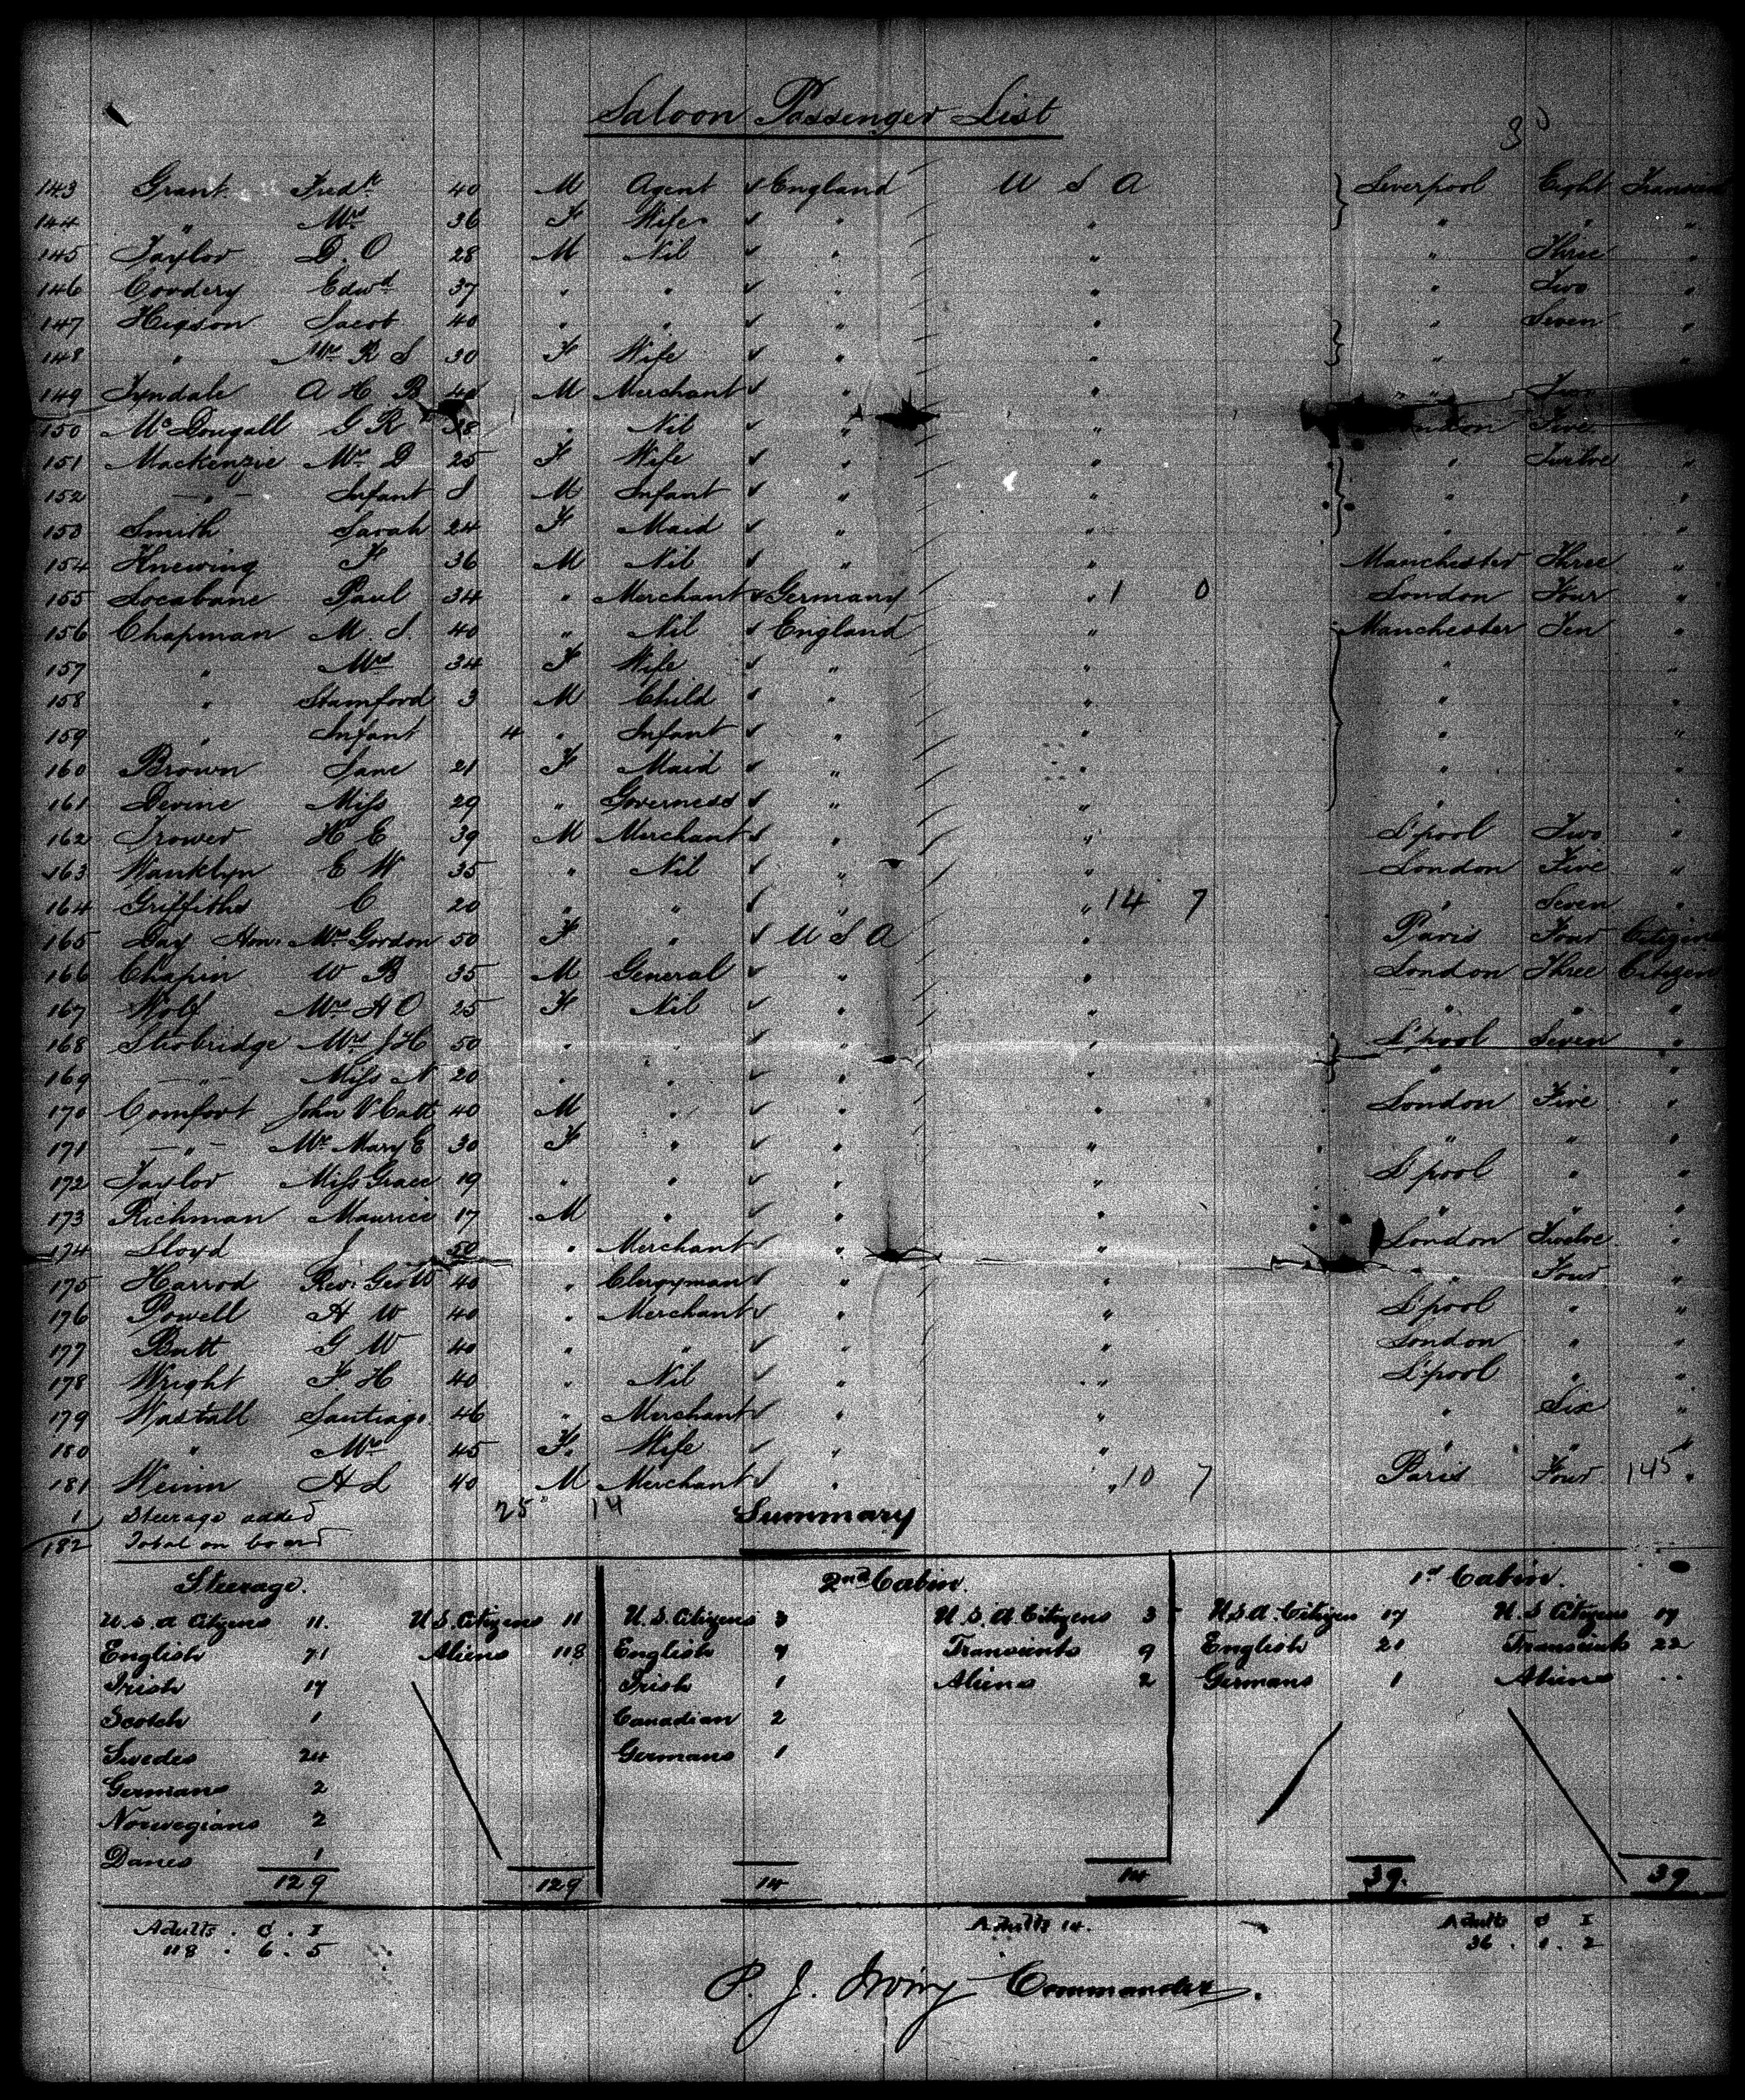 Saloon Passenger List
143 Grant Fredk 40 M Agent ✓ England U S A Liverpool Eight Transient
144 " Mrs 36 F Wife ✓ " " " " "
145 Taylor D. O 28 M Nil ✓ " " " Three "
146 Cordery Edwd 37 " " ✓ " " " Two "
147 Higson Jacob 40 " " ✓ " " " Seven "
148 " Mrs R S 30 F Wife ✓ " " " "
149 Tyndale A H B 40 M Merchant ✓ " " "
150 McDougall G R 28 " Nil ✓ " " London Five
151 Mackenzie Mrs D 25 F Wife ✓ " " " Twelve "
152 — " — Infant M Infant ✓ " " " "
153 Smith Sarah 24 F Maid ✓ " " " "
154 Knewing F 36 M Nil ✓ " " Manchester Three "
155 Locabane Paul 34 " Merchant ✓ Germany " 1 0 London Four "
156 Chapman M. S. 40 " Nil ✓ England " Manchester Ten "
157 " Mrs 34 F Wife ✓ " " " "
158 " Stamford 3 M Child ✓ " " " "
159 " Infant 4 " Infant ✓ " " " "
160 Brown Jane 21 F Maid ✓ " " " "
161 Devine Miss 29 " Governess ✓ " " " "
162 Trower H E 39 M Merchant ✓ " " L'pool Two "
163 Wanklyn E W 35 " Nil ✓ " " London Five "
164 Griffiths C 20 " " ✓ " " 14 7 " Seven "
165 Day Hon. Mrs Gordon 50 F " ✓ U S A " Paris Four Citizen
166 Chapin W B 35 M General ✓ " " London Three Citizen
167 Wolf Mrs H O 25 F Nil ✓ " " " " "
168 Strobridge Mrs J H 50 " " ✓ " " L'pool Seven "
169 — " — Miss N 20 " " ✓ " " " "
170 Comfort John V Catt 40 M " ✓ " " London Five "
171 — " — Mrs Mary E 30 F " ✓ " " " " "
172 Taylor Miss Grace 19 " " ✓ " " L'pool " "
173 Richman Maurice 17 M " ✓ " " " " "
174 Lloyd J 50 " Merchant ✓ " " London Twelve "
175 Harrod Rev. Geo W 40 " Clergyman ✓ " " " Four "
176 Powell H W 40 " Merchant ✓ " " L'pool " "
177 Butt G W 40 " " ✓ " " London " "
178 Wright F. H 40 " Nil ✓ " " L'pool " "
179 Wastall Santiago 46 " Merchant ✓ " " " Six "
180 " Mrs 45 F. Wife ✓ " " " " "
181 H L 40 M Merchant ✓ " " 10 7 Paris Four 145 "
1 Steerage added 25 14 Summary
182 Total on board
Steerage. 2nd Cabin. 1st Cabin.
U.S.A Citizens 11. U.S. Citizens 11 U.S. Citizens 3 U.S.A Citizens 3 U.S.A. Citizen 17 U.S Citizens 17
English 71 Aliens 118 English 7 Transients 9 English 21 Transients 22
Irish 17 Irish 1 Aliens 2 Germans 1 Aliens ..
Scotch 1 Canadian 2
Swedes 24 Germans 1
Germans 2
Norwegians 2
Danes 1
129 129 14 14 39. 39
Adults . C . I Adults 14. Adults C I
118 . 6 . 5 36 . 1 . 2
P. J. Irving Commander.